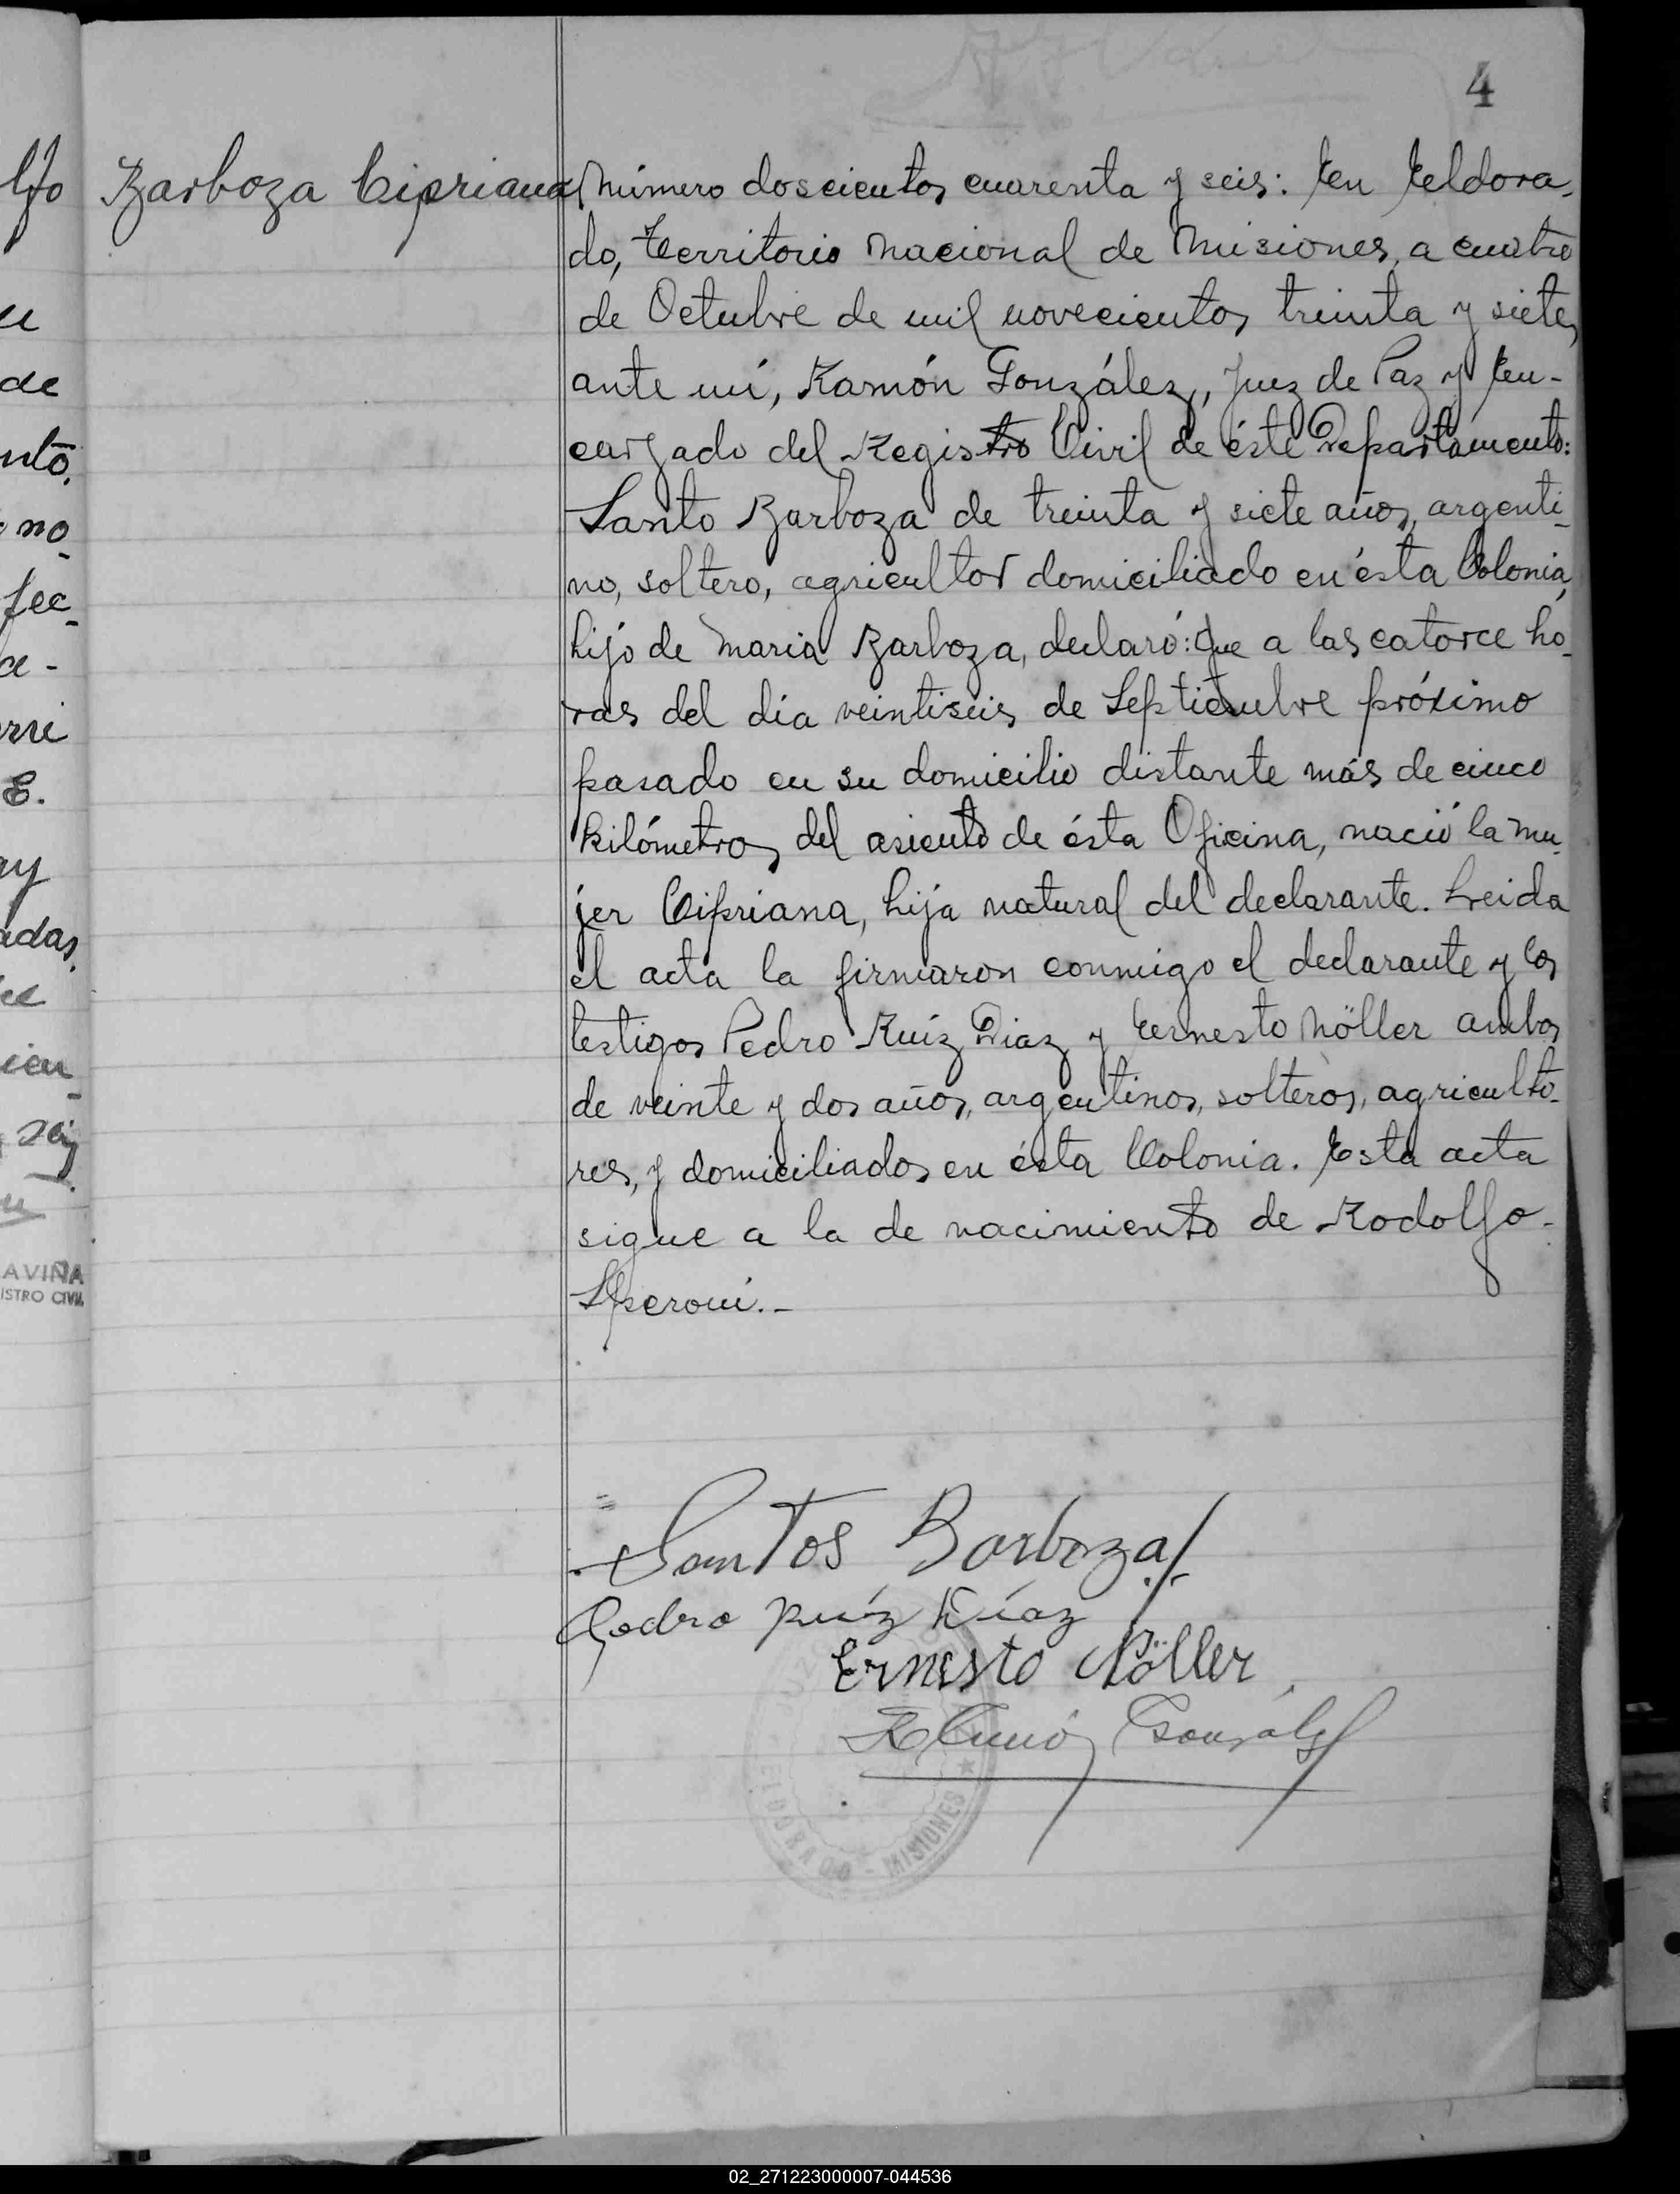 4
Barboza Cipriana
Número doscientos cuarenta y seis: En Eldora-
do, Territorio Nacional de Misiones, a cuatro
de Octubre de mil novecientos treinta y siete,
ante mí, Ramón González, Juez de Paz y En-
cargado del Registro Civil de éste Departamento:
Santo Barboza de treinta y siete años, argenti-
no, soltero, agricultor domiciliado en ésta Colonia,
hijo de Maria Barboza, declaró: Que a las catorce ho-
ras del día veintiseis de Septiembre próximo
pasado en su domicilio distante más de cinco
kilómetros del asiento de ésta Oficina, nació la mu-
jer Cipriana, hija natural del declarante. Leida
el acta la firmaron conmigo el declarante y los
testigos Pedro Ruíz Diaz y Ernesto Nöller ambos
de veinte y dos años, argentinos, solteros, agriculto-
res, y domiciliados en ésta Colonia. Esta acta
sigue a la de nacimiento de Rodolfo
Speroni.-
Santos Barboza
Pedro Ruíz Díaz
Ernesto Nöller
Ramón González
ELDORADO - MISIONES
lfo
de
nto.
no-
fec-
a-
rri
E.
ay
adas,
ien-
AVIÑA
ISTRO CIVIL
02_271223000007-044536